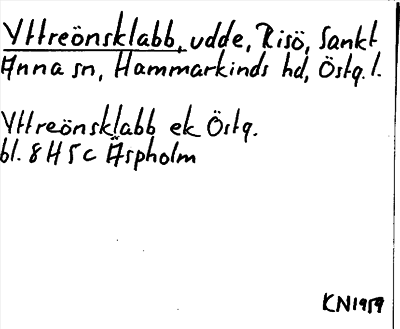 Yttreönsklabb, udde, Risö, Sankt
Anna sn, Hammarkinds hd, Östg. l.
Yttreönsklabb ek Östg.
bl. 8 H 5 c Äspholm
KN 1959